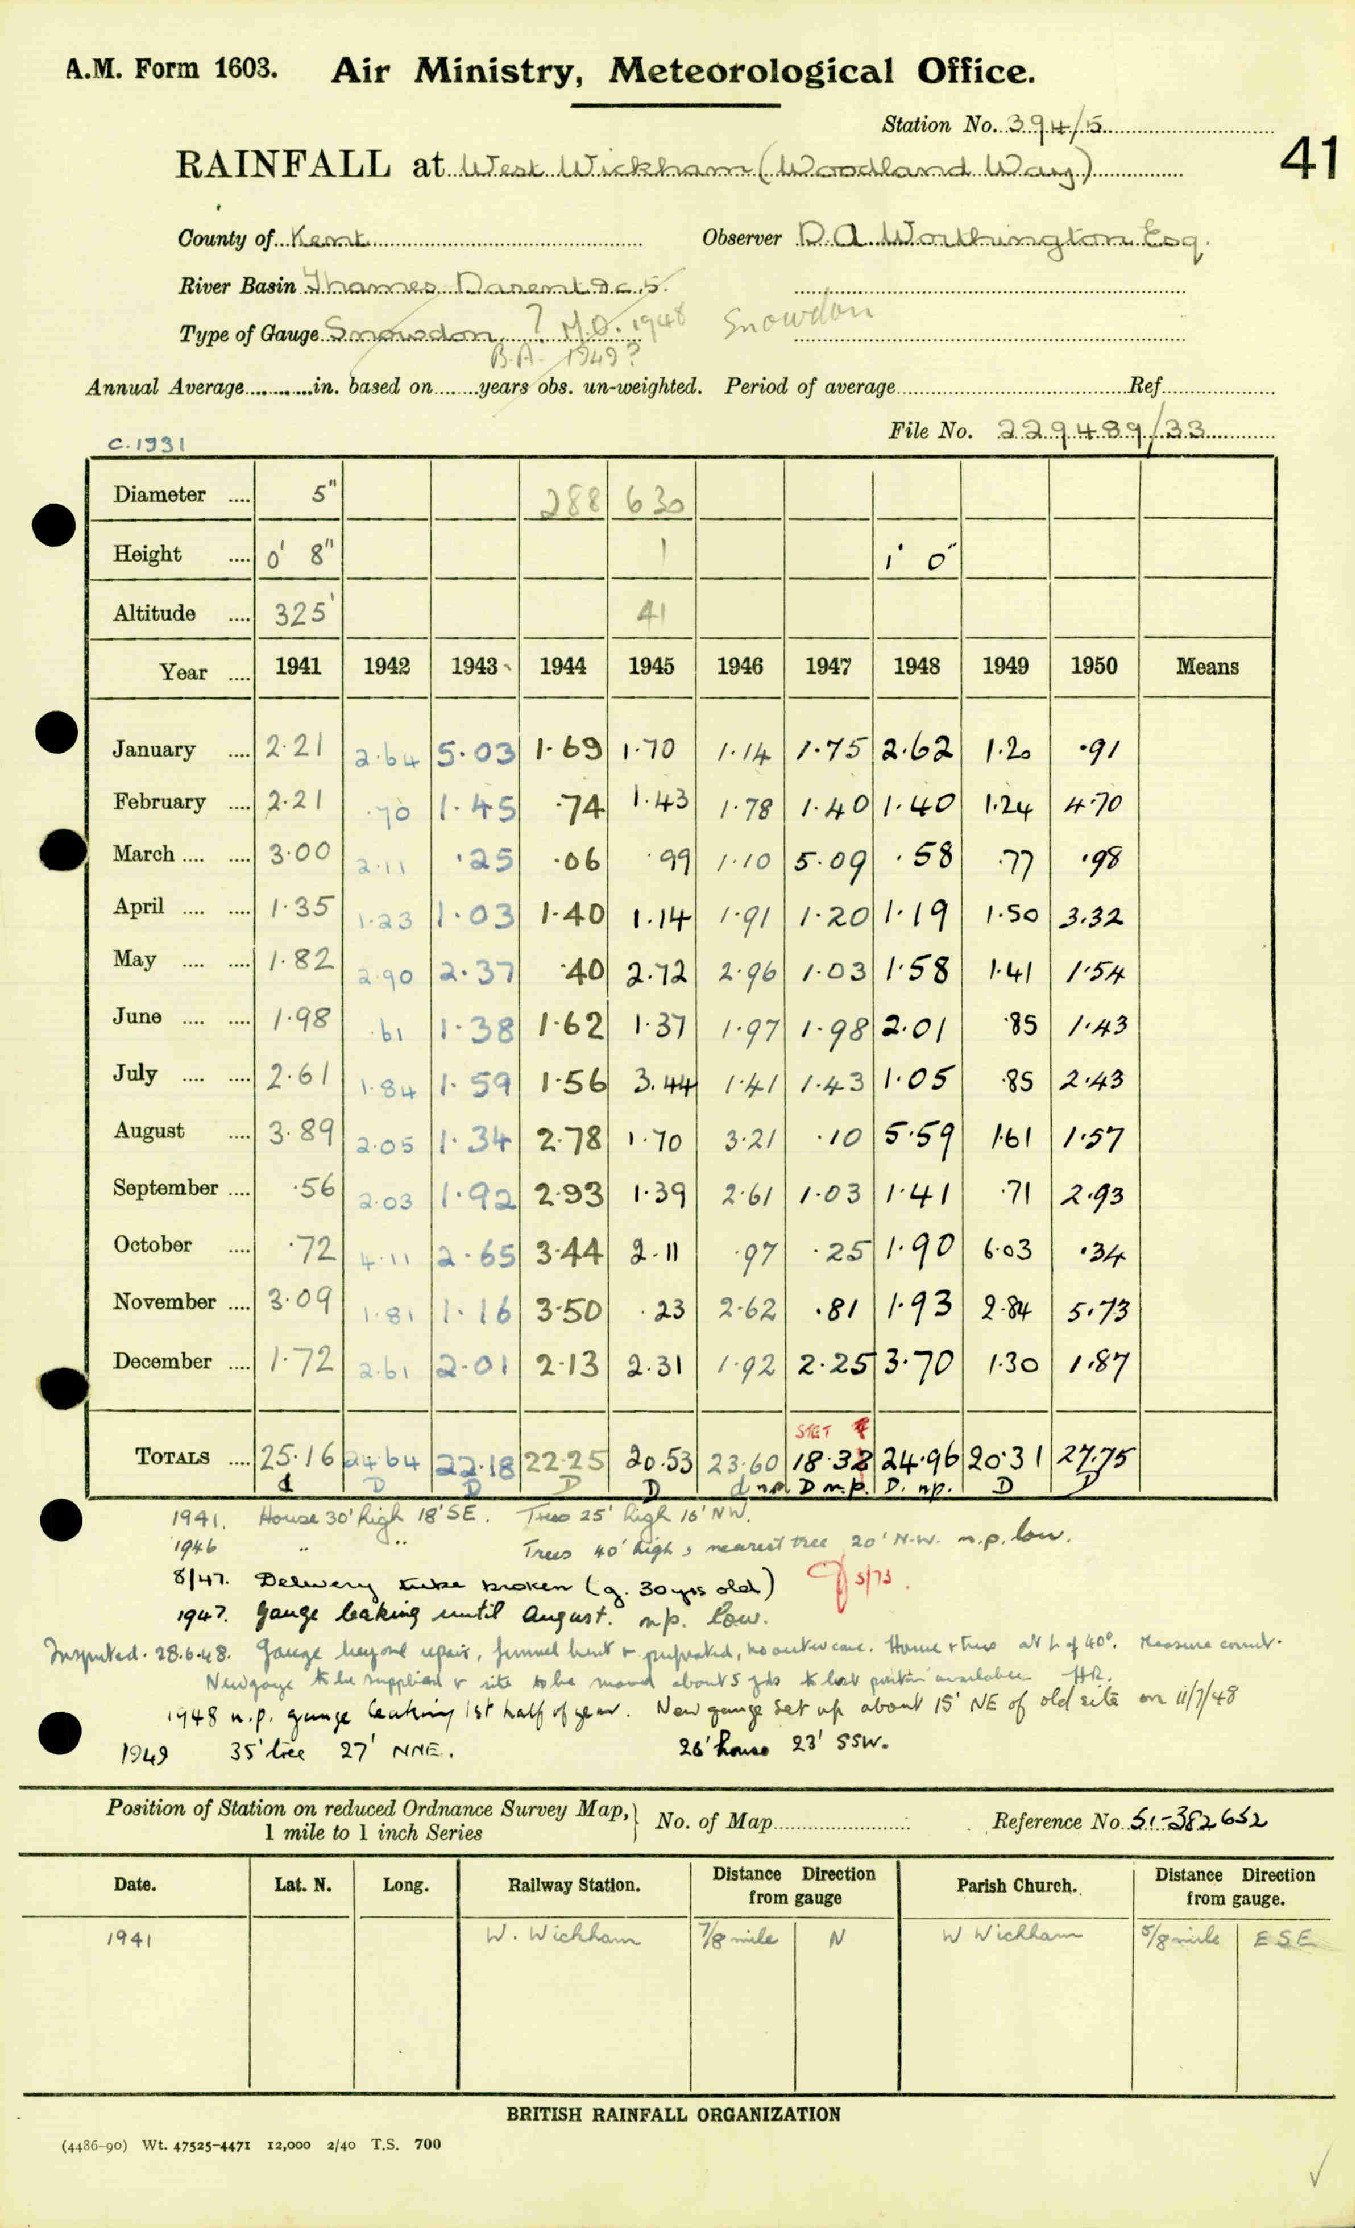 A.M. Form 1603. Air Ministry, Meteorological Office.
Station No. 394/5
41
RAINFALL at West Wickham (Woodland Way)
County of Kent Observer D. A. Worthington Esq.
River Basin Thames Darent &c 5.
Type of Gauge Snowdon ? M.O. 1948 Snowdon
B.A. 1949?
Annual Average in. based on years obs. un-weighted. Period of average Ref
File No. 229489/33
C.1931
Diameter 5" 288 630
Height 0' 8" 1 1' 0"
Altitude 325' 41
Year 1941 1942 1943 1944 1945 1946 1947 1948 1949 1950 Means
January 2.21 2.64 5.03 1.69 1.70 1.14 1.75 2.62 1.20 .91
February 2.21 .70 1.45 .74 1.43 1.78 1.40 1.40 1.24 4.70
March 3.00 2.11 .25 .06 .99 1.10 5.09 .58 .77 .98
April 1.35 1.23 1.03 1.40 1.14 1.91 1.20 1.19 1.50 3.32
May 1.82 2.90 2.37 .40 2.72 2.96 1.03 1.58 1.41 1.54
June 1.98 .61 1.38 1.62 1.37 1.97 1.98 2.01 .85 1.43
July 2.61 1.84 1.59 1.56 3.44 1.41 1.43 1.05 .85 2.43
August 3.89 2.05 1.34 2.78 1.70 3.21 .10 5.59 1.61 1.57
September .56 2.03 1.92 2.93 1.39 2.61 1.03 1.41 .71 2.93
October .72 4.11 2.65 3.44 2.11 .97 .25 1.90 6.03 .34
November 3.09 1.81 1.16 3.50 .23 2.62 .81 1.93 2.84 5.73
December 1.72 2.61 2.01 2.13 2.31 1.92 2.25 3.70 1.30 1.87
STET
TOTALS 25.16 24.64 22.18 22.25 20.53 23.60 18.32 24.96 20.31 27.75
d D D D D d n.p. D n.p. D. n.p. D D
1941. House 30' high 18' SE. Trees 25' high 16' NW.
1946 " " Trees 40' high, nearest tree 20' N.W. n.p. low.
8/47. Delivery tube broken (g. 30 yrs old) 5/73.
1947. Gauge leaking until August. n.p. low.
Inspected. 28.6.48. Gauge beyond repair, funnel bent & perforated, no outer case. House & trees at L of 40°. Measure correct.
New gauge to be supplied & site to be moved about 5 yds to best position available. HR.
1948 n.p. gauge leaking 1st half of year. New gauge set up about 15' NE of old site on 11/7/48
1949 35' tree 27' NNE. 26' house 23' SSW.
Position of Station on reduced Ordnance Survey Map, 1 mile to 1 inch Series No. of Map Reference No. 51-382652
Date. Lat. N. Long. Railway Station. Distance Direction from gauge Parish Church. Distance Direction from gauge.
1941 W. Wickham 7/8 mile N W Wickham 5/8 mile ESE
BRITISH RAINFALL ORGANIZATION
(4486-90) Wt. 47525-4471 12,000 2/40 T.S. 700